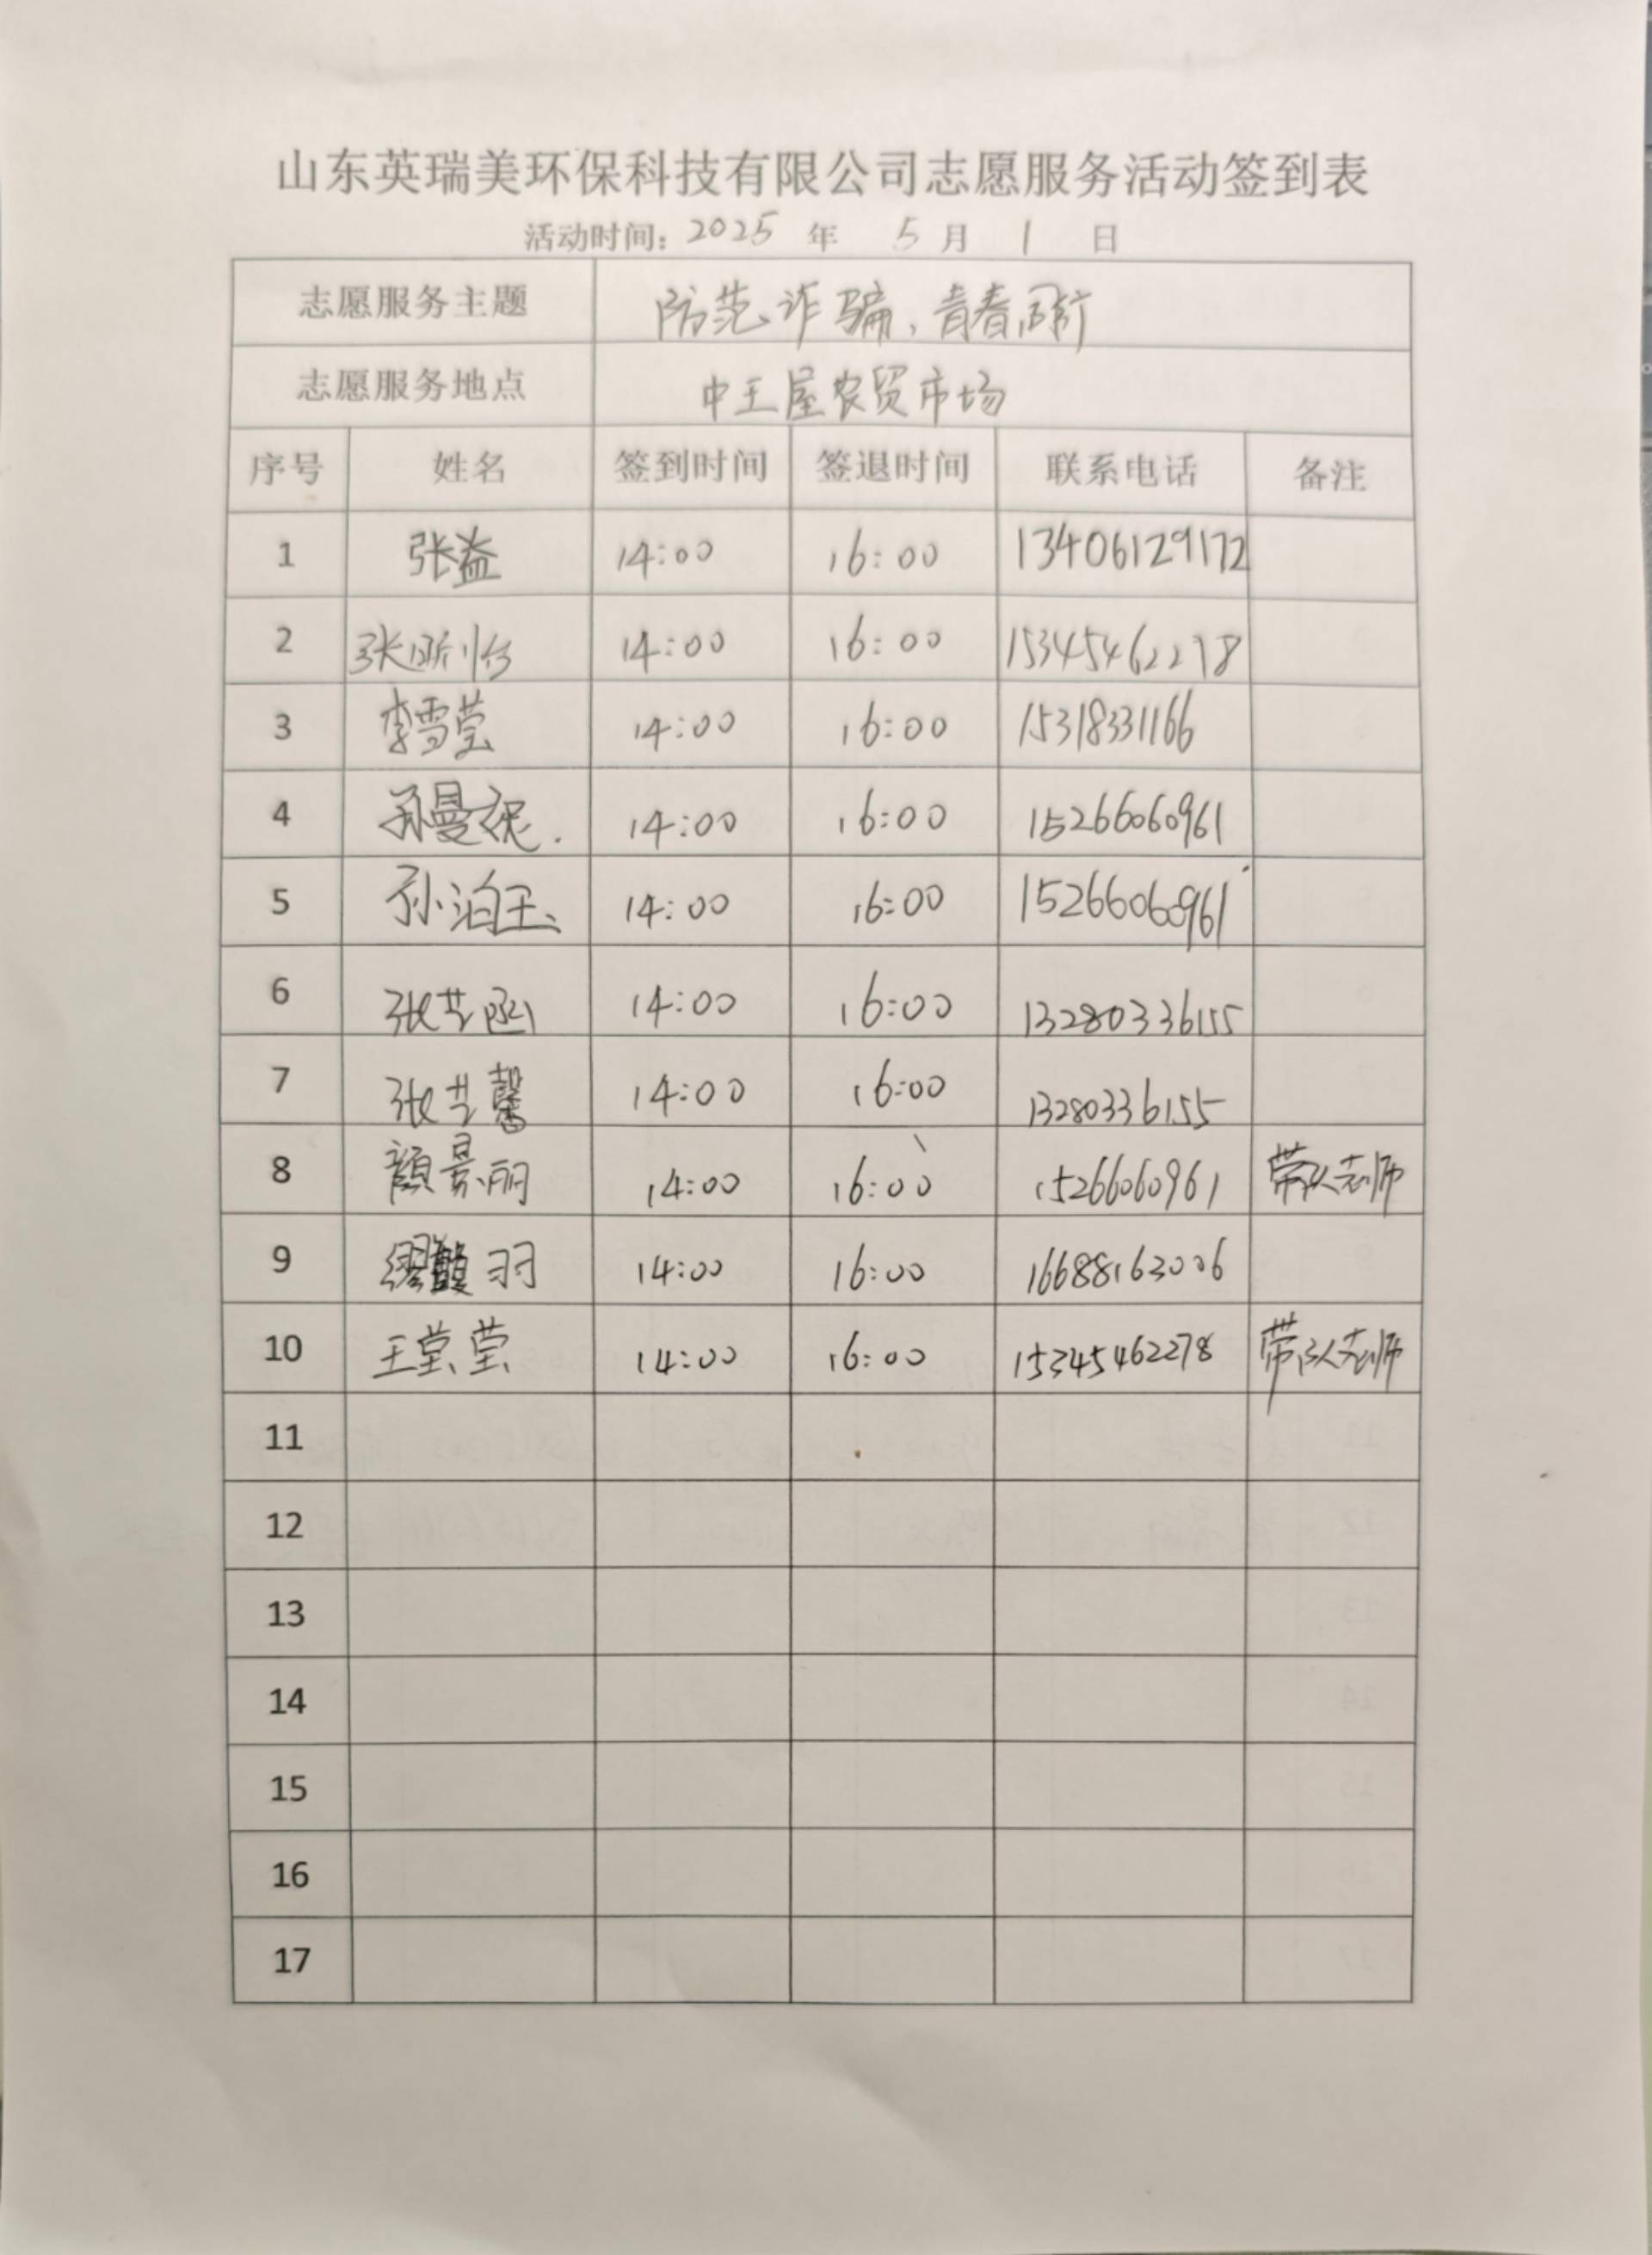 山东英瑞美环保科技有限公司志愿服务活动签到表
活动时间：2025 年 5 月 1 日
志愿服务主题 防范诈骗，青春同行
志愿服务地点 中王屋农贸市场
序号 姓名 签到时间 签退时间 联系电话 备注
1 张益 14:00 16:00 13406129172
2 张 14:00 16:00 15345462278
3 李雪莹 14:00 16:00 15318331166
4 孙曼妮 14:00 16:00 15266060961
5 孙泊玉 14:00 16:00 15266060961
6 张艺函 14:00 16:00 13280336155
7 张艺馨 14:00 16:00 13280336155
8 颜景丽 14:00 16:00 15266060961 带队老师
9 缪馥羽 14:00 16:00 16688163006
10 王莹莹 14:00 16:00 15345462278 带队老师
11
12
13
14
15
16
17